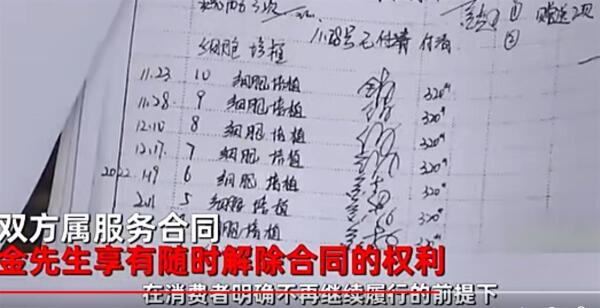 赠送2项
②
11.28号已付清 付清
细胞培植
11.23 10 细胞培植 320
11.28 9 细胞培植 320
12.10 8 细胞培植 320
12.17 7 细胞培植 320
2022.1.19 6 细胞培植 320
2.11 5 细胞培植 320
双方属服务合同
金先生享有随时解除合同的权利
在消费者明确不再继续履行的前提下